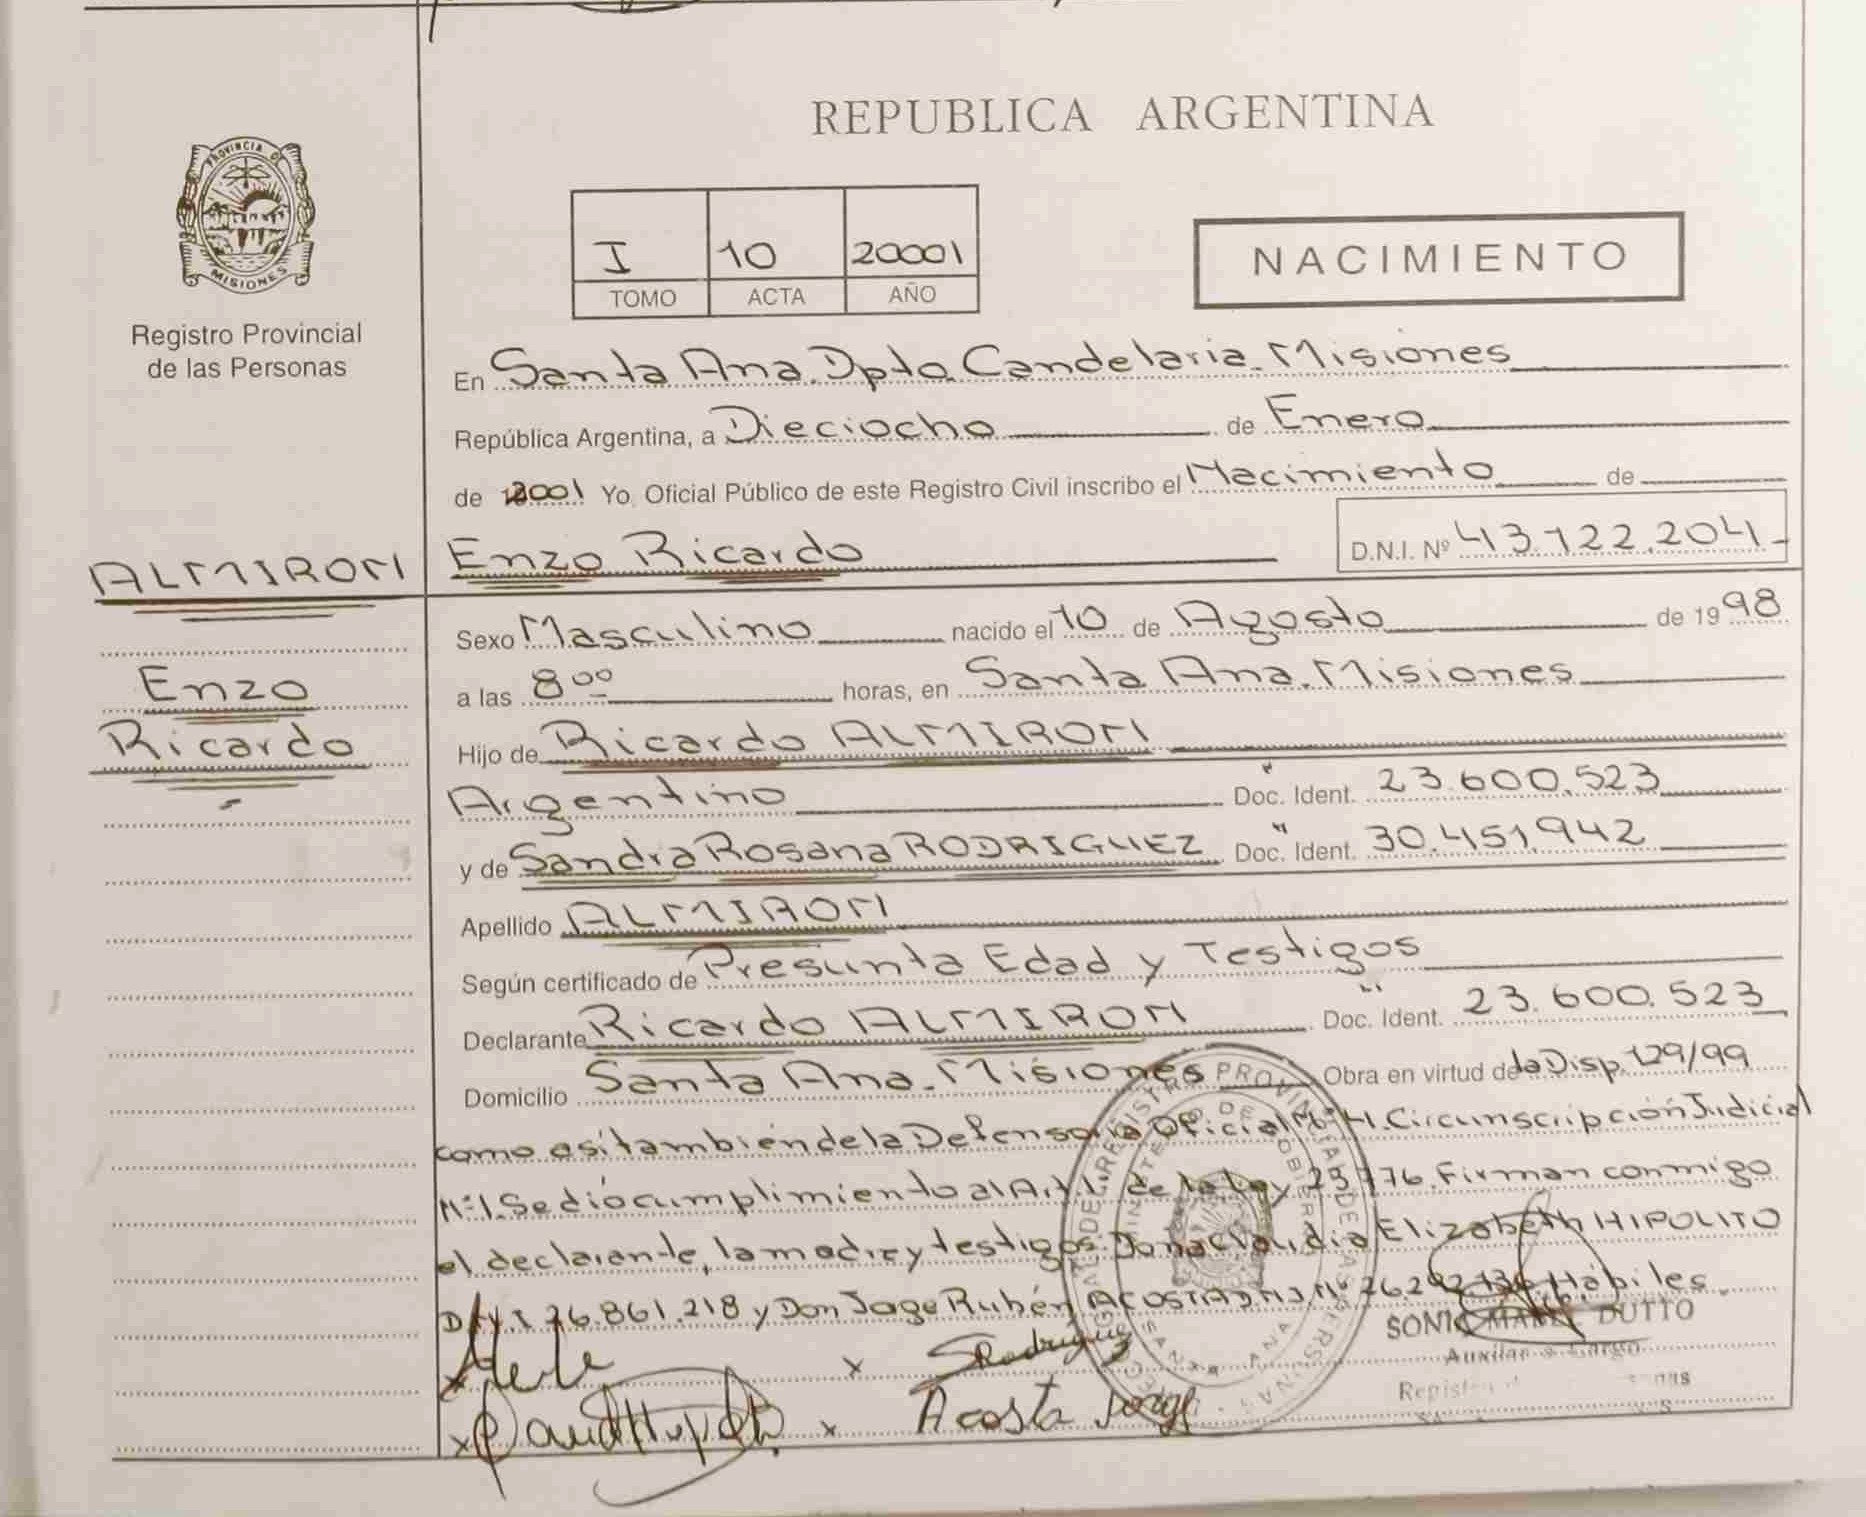 PROVINCIA DE
MISIONES
Registro Provincial
de las Personas
REPUBLICA ARGENTINA
I 10 20001
TOMO ACTA AÑO
NACIMIENTO
En Santa Ana. Dpto. Candelaria. Misiones
República Argentina, a Dieciocho de Enero
de 2001 Yo, Oficial Público de este Registro Civil inscribo el Nacimiento de
ALMIRON Enzo Ricardo D.N.I. Nº 43.122.204
Sexo Masculino nacido el 10 de Agosto de 1998
Enzo a las 8 00 horas, en Santa Ana. Misiones
Ricardo Hijo de Ricardo ALMIRON
Argentino Doc. Ident. 23.600.523
y de Sandra Rosana RODRIGUEZ Doc. Ident. 30.451.942
Apellido ALMIRON
Según certificado de Presunta Edad y Testigos
Declarante Ricardo ALMIRON Doc. Ident. 23.600.523
Domicilio Santa Ana. Misiones Obra en virtud de la Disp. 129/99
como asi tambien de la Defensoria Oficial Nº 4. Circunscripción Judicial
Nº 1. Se dió cumplimiento al Art. 1. de la Ley 23.776. Firman conmigo
el declarante, la madre y testigos. Doña Elizabeth HIPOLITO
D.N.I. 26.861.218 y Don Jorge Rubén ACOSTA DNI Nº Hábiles.
DUTTO
Auxiliar a Cargo
x SRodriguez
x x Acosta Jorge